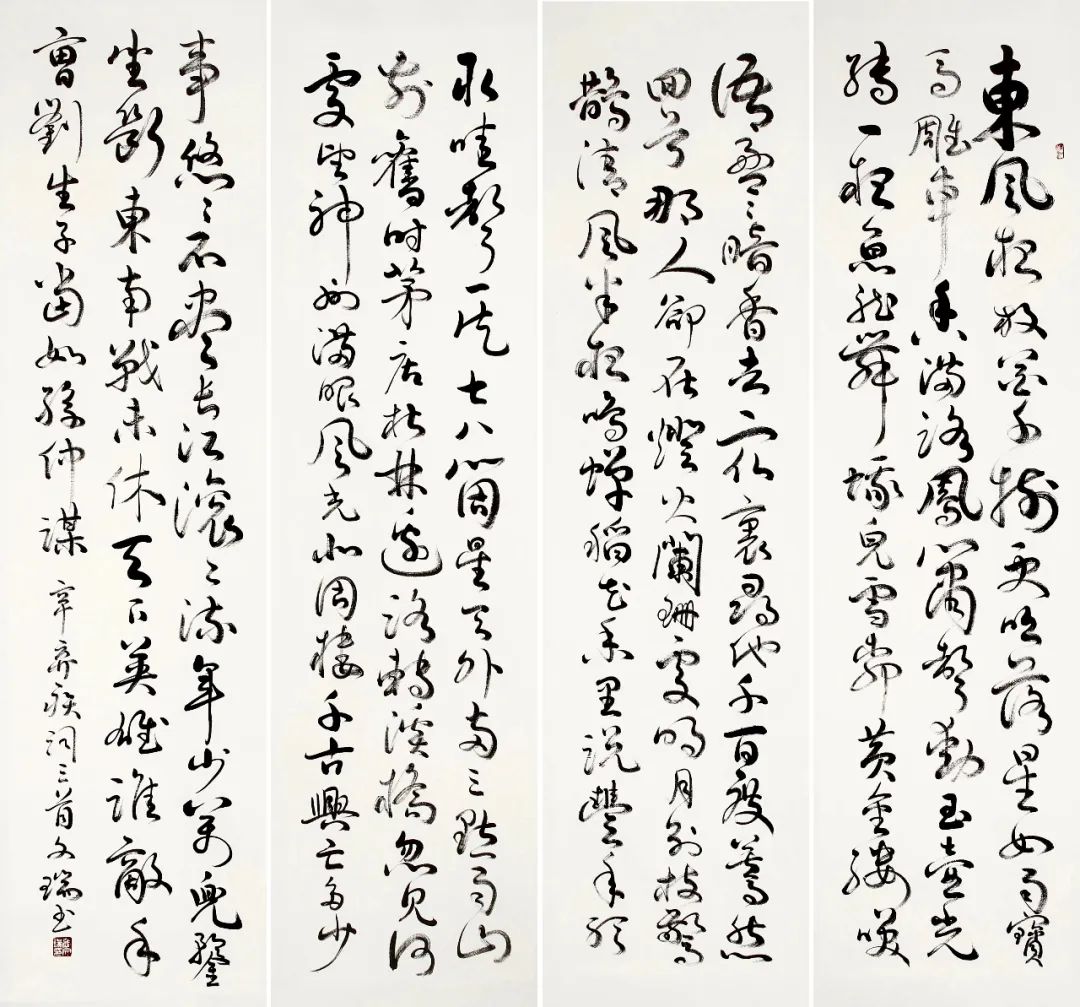 東風夜放花千樹更吹落星如雨寶
馬雕車香滿路鳳簫聲動玉壺光
轉一夜魚龍舞蛾兒雪柳黃金縷笑
語盈〻暗香去眾裏尋他千百度驀然
回首那人卻在燈火闌珊處明月別枝驚
鵲清風半夜鳴蟬稻花香里說豐年聽
取蛙聲一片七八箇星天外兩三點雨山
前舊時茅店社林邊路轉溪橋忽見何
處望神州滿眼風光北固樓千古興亡多少
事悠〻不盡長江滾〻流年少萬兜鍪
坐斷東南戰未休天下英雄誰敵手
曹劉生子當如孫仲謀 辛弃疾詞三首文瑞书